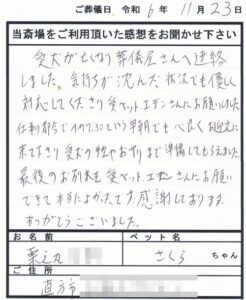 ご葬儀日 令和 6年 11月 23日
当斎場をご利用頂いた感想をお聞かせ下さい
愛犬が亡くなり葬儀屋さんへ連絡
しました。気持ちが沈んだ状況でも優しい
対応してくださり愛ペットエデンさんにお願いしました。
仕事前で の7:30という早朝でも心良くお迎えに
来て下さり愛犬の 準備してもらえました。
最後のお別れを愛ペットエデンさんにお願い
できて よかったです。感謝しております。
ありがとうございました。
お名前 ペット名
栗之丸 さくら ちゃん
ご住所
直方市